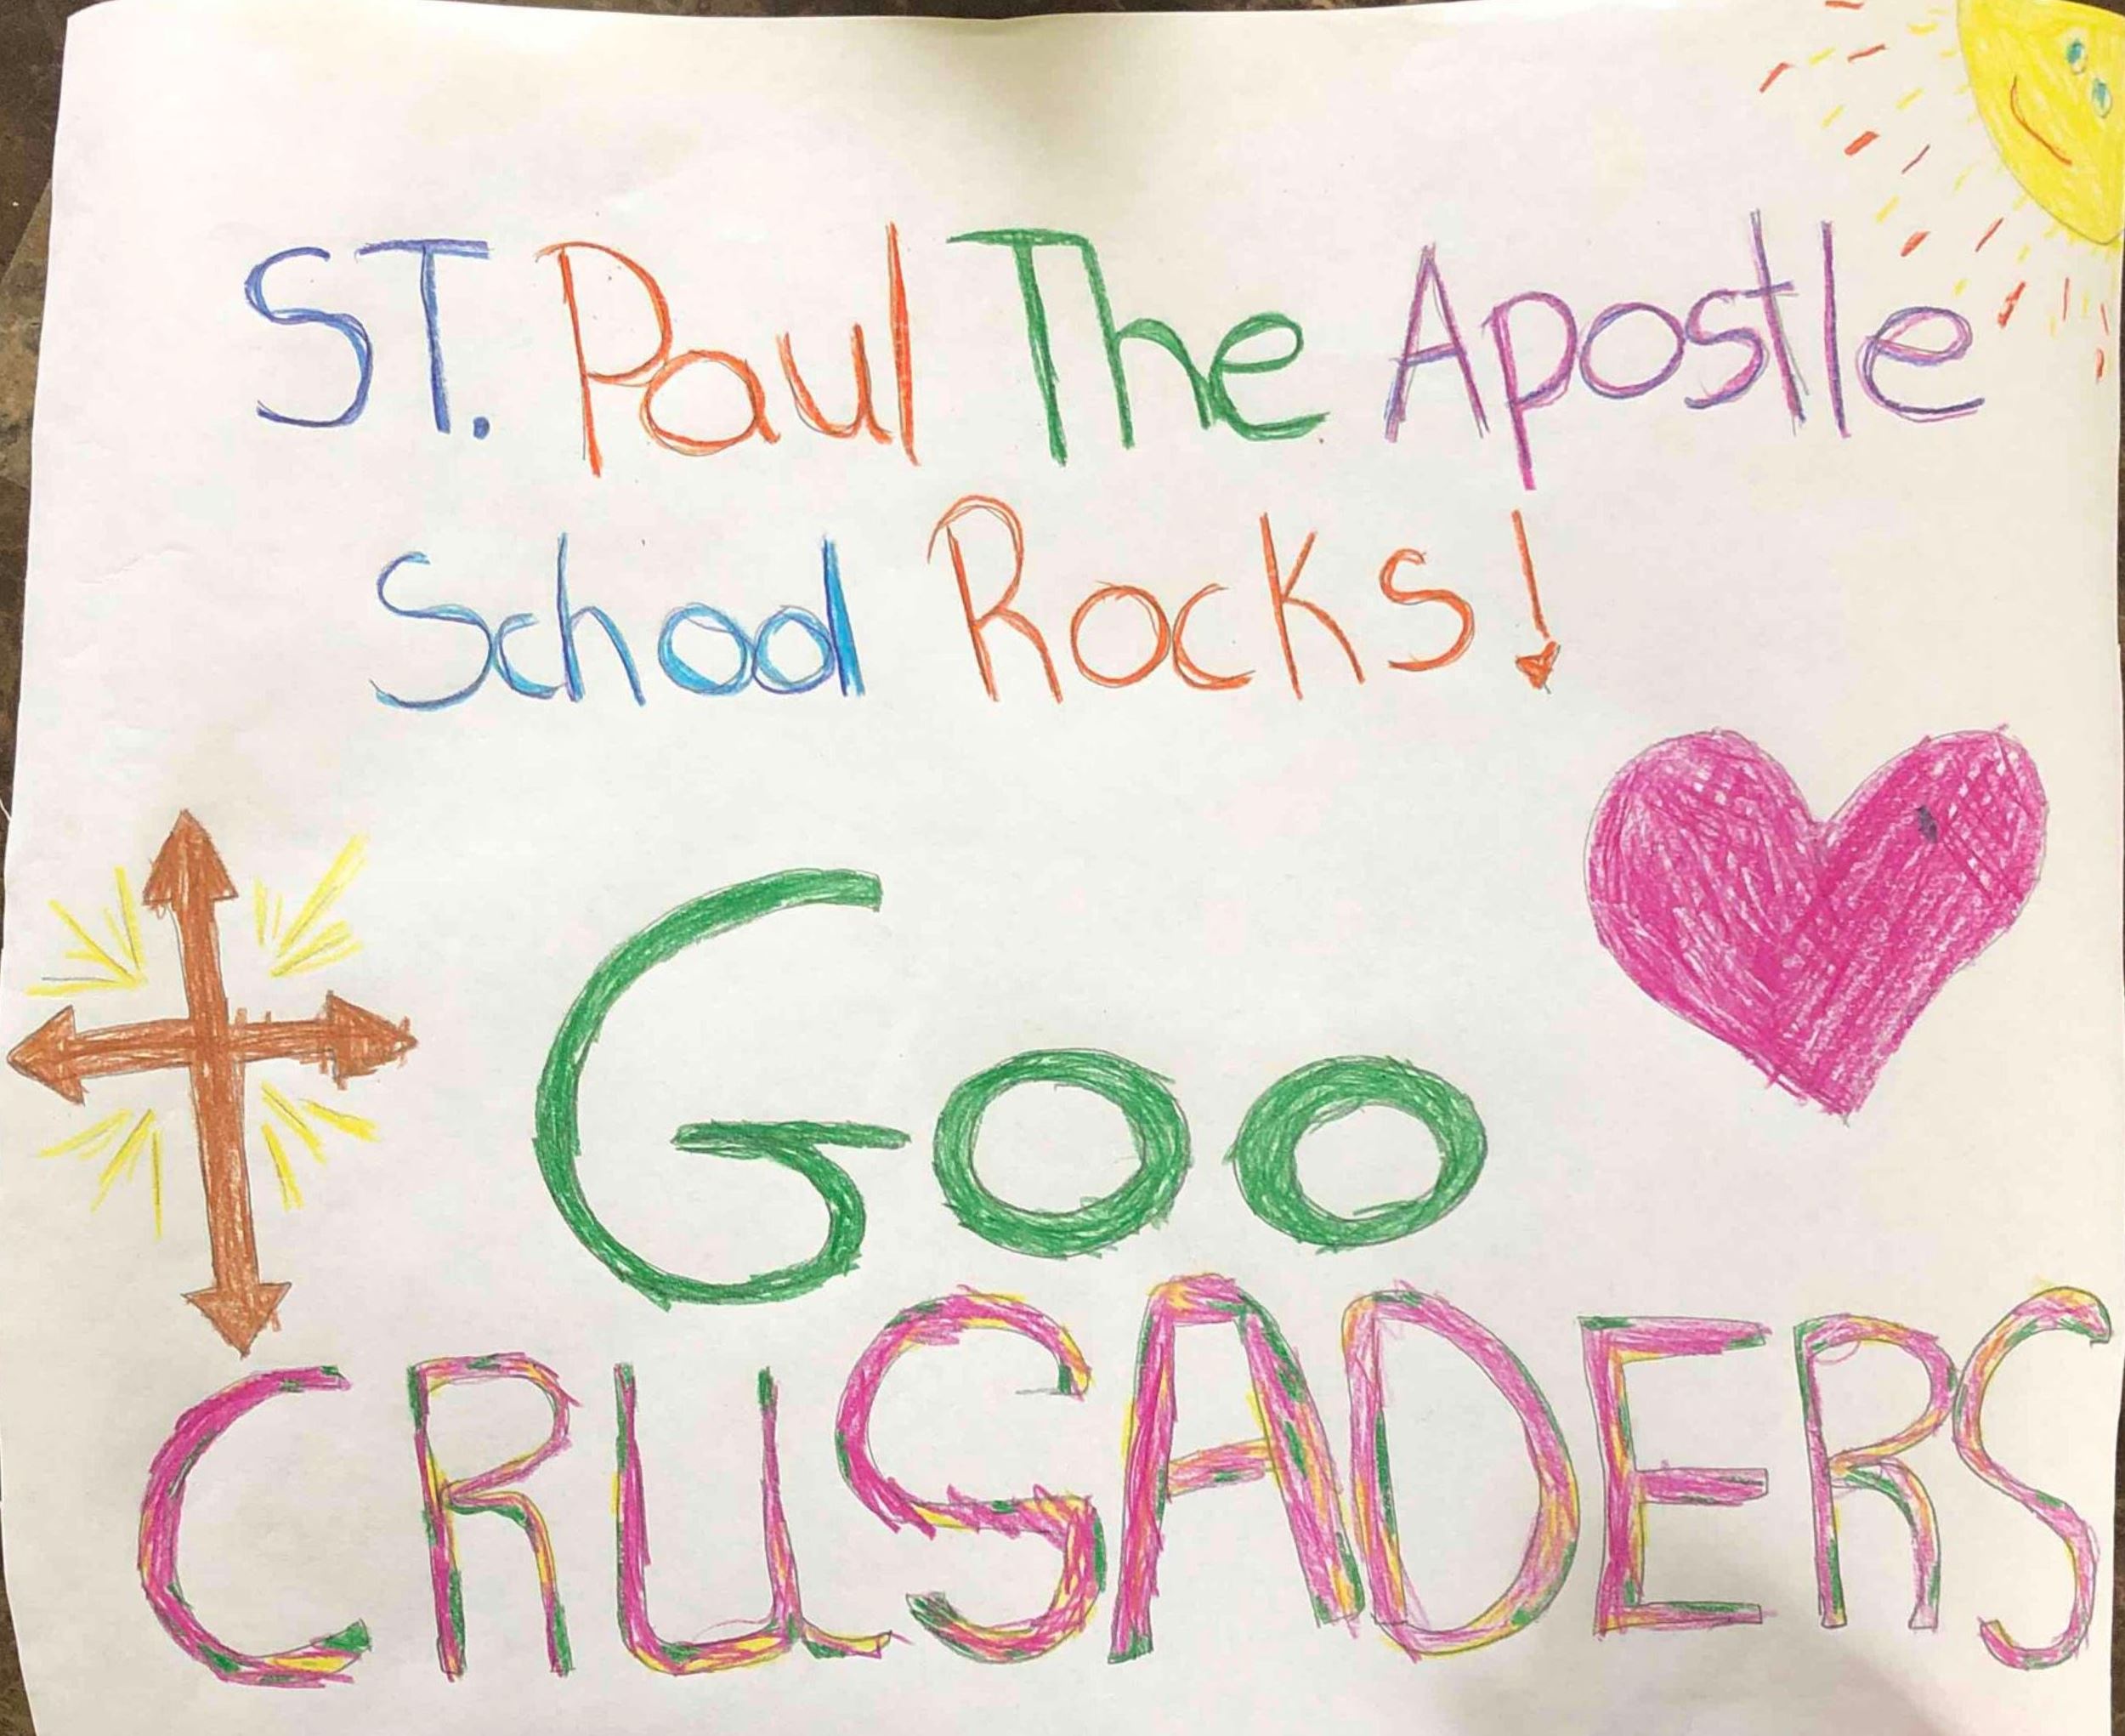 ST. Paul The Apostle
School Rocks!
Goo
CRUSADERS